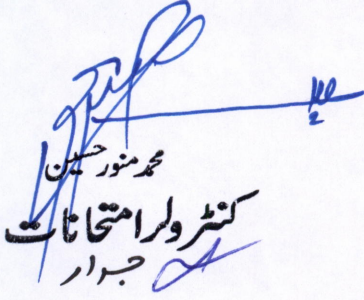 محمد منور حسین
کنٹرولر امتحانات